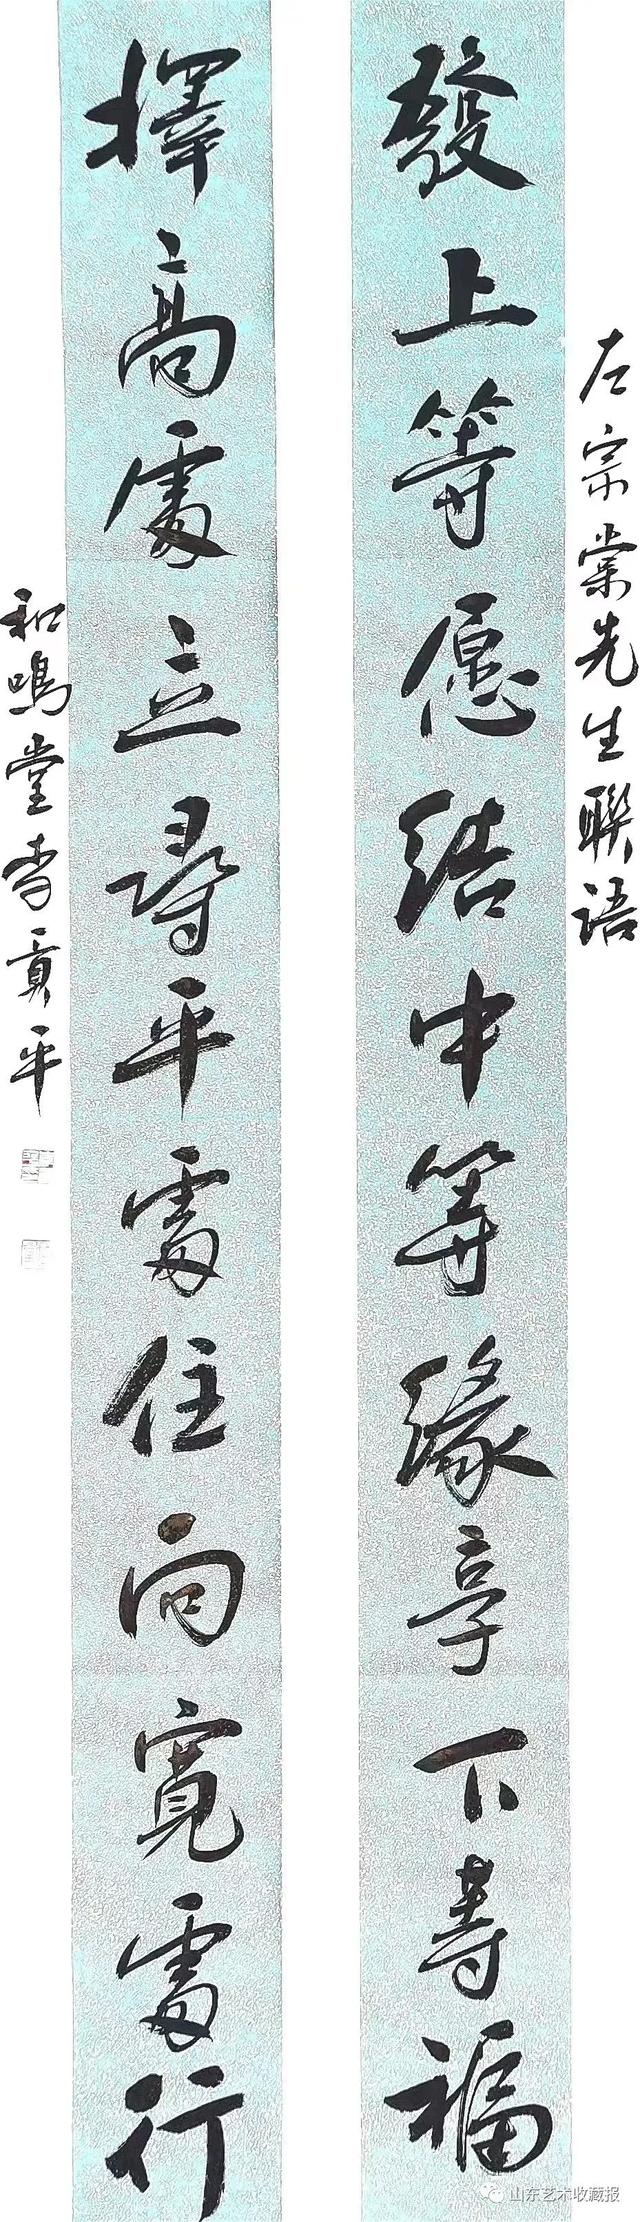 左宗棠先生联语
發上等愿结中等缘享下等福
擇高處立尋平處住向寬處行
和鳴堂李貢平
山东艺术收藏报